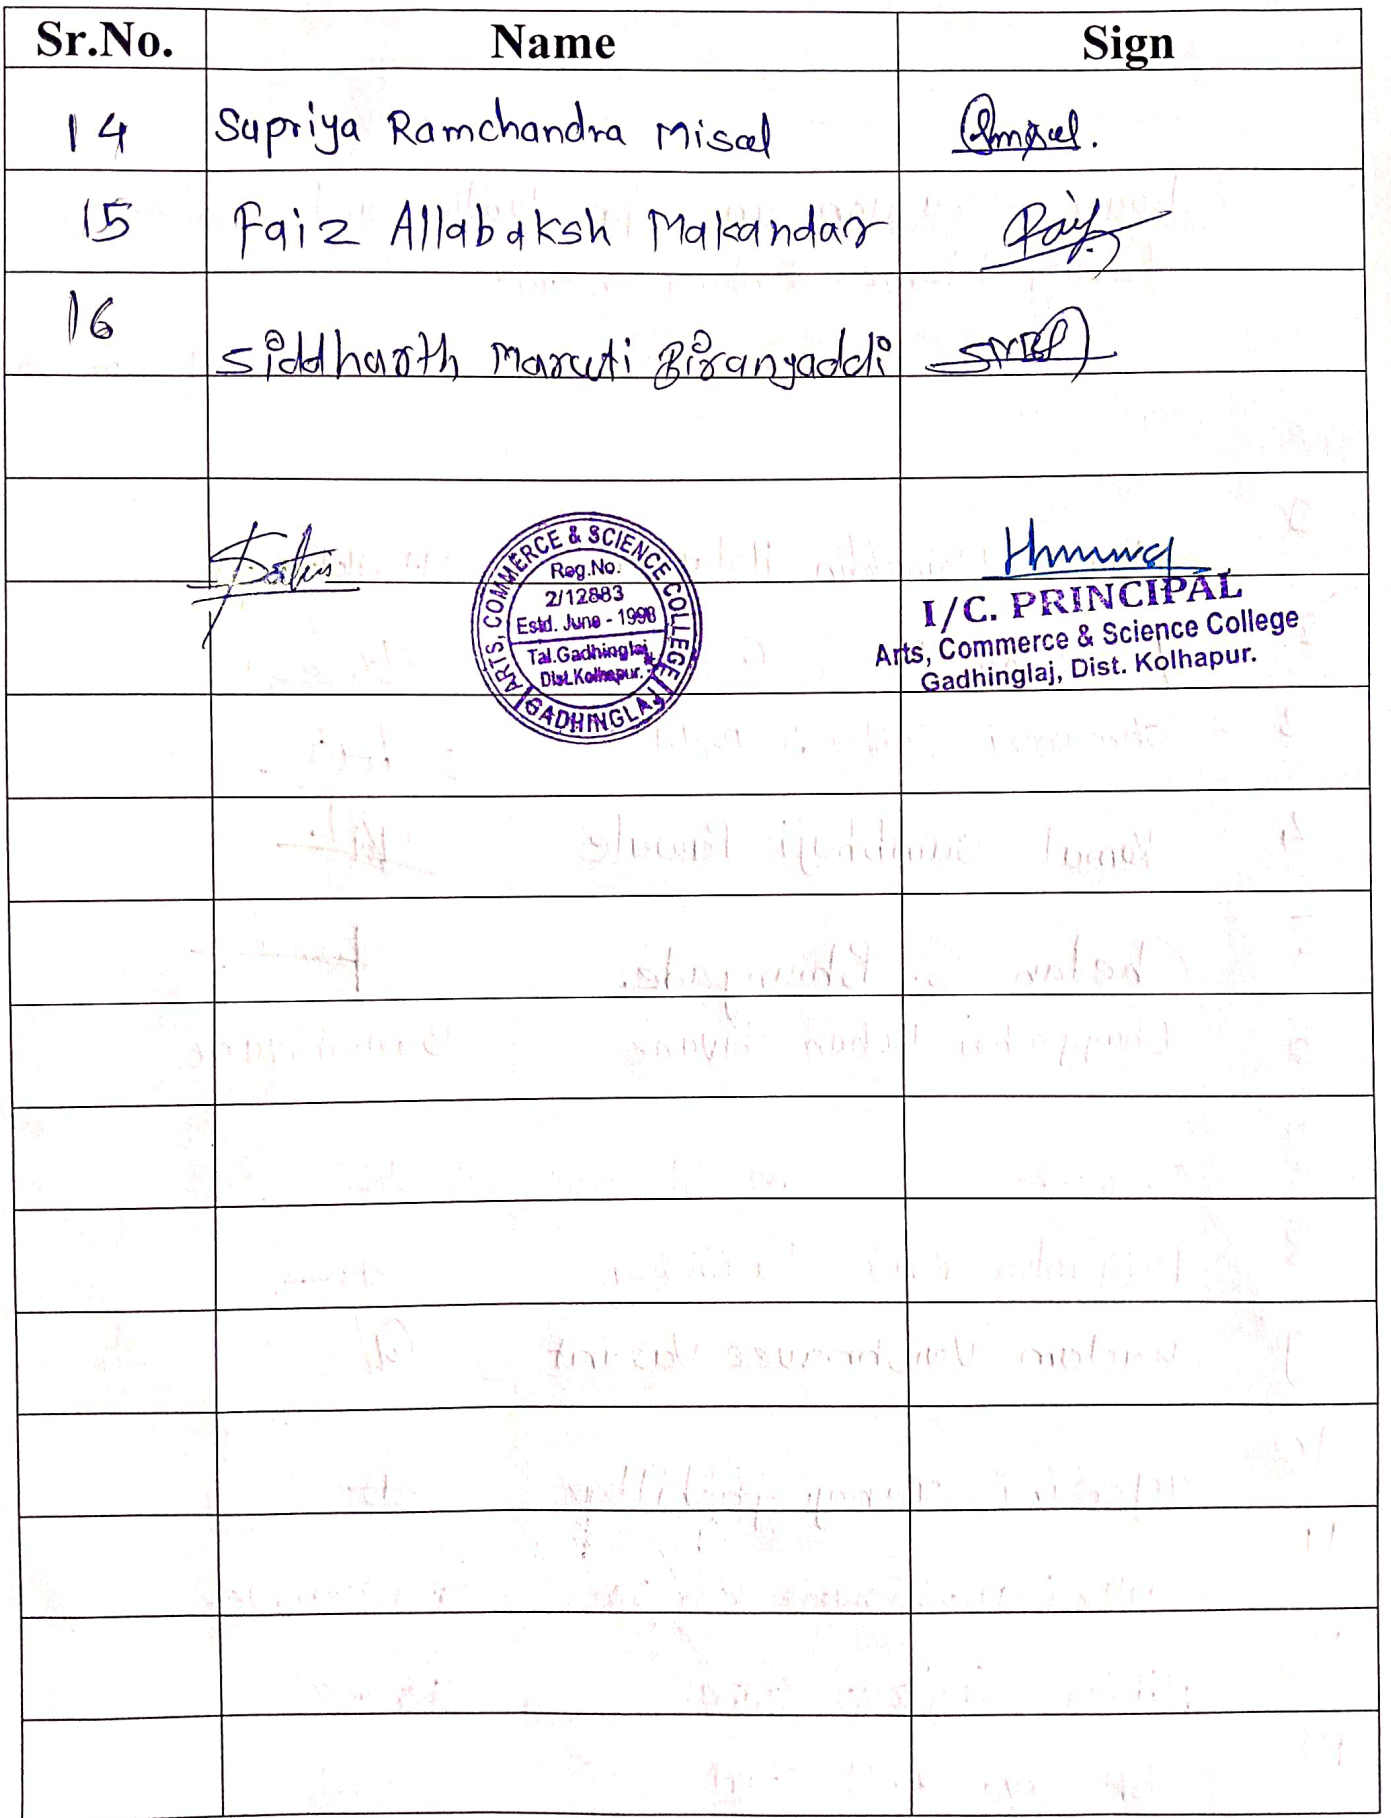 Sr.No. Name Sign
14 Supriya Ramchandra Misal
15 Faiz Allabaksh Makandar
16 Siddharth Maruti Birangaddi
ARTS, COMMERCE & SCIENCE COLLEGE
Reg.No.
2/12883
Estd. June - 1998
Tal.Gadhinglaj
Dist.Kolhapur.
GADHINGLAJ
I/C. PRINCIPAL
Arts, Commerce & Science College
Gadhinglaj, Dist. Kolhapur.